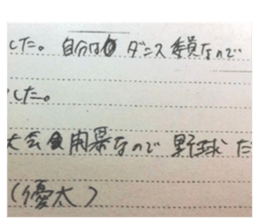 した。自分はダンス委員なので
した。
大会用縣なので 野球だ
(優太)